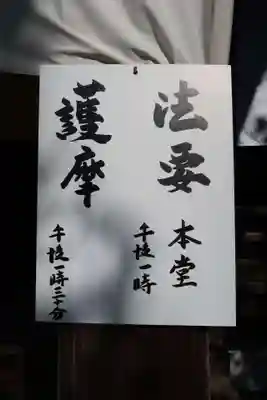 法要
本堂
午後一時
護摩
午後一時三十分